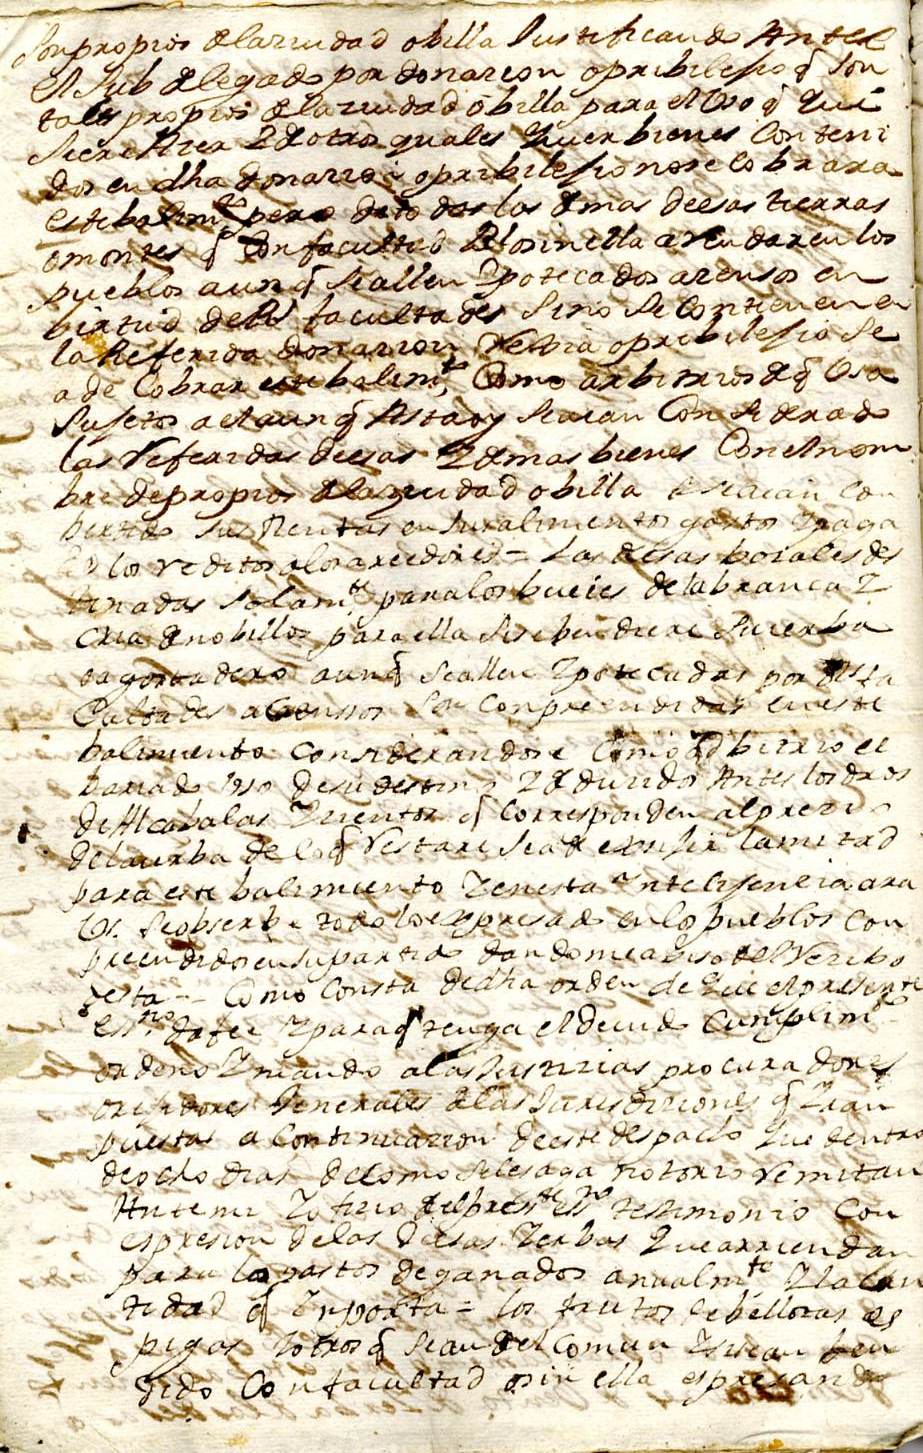 Son propios de la ziudad o billa Justificando Antel
el Sub delegado por donazion o pribilesio q̃ Son
tales propios de la ziudad o billa para el Uso q̃ qui
siere Azer 2 de otros quales quier bienes Conteni
dos en dha donazion o pribilesio no se cobrara
este balimto pero de todos los demas deesas tierras
o montes q̃ Con facultad o sin ella arendaren los
pueblos aunq̃ se allen Ypotecados a zensos en
birtud de Rs facultades Sino se Contienen en
la Referida donazion Venta o pribilesio Se
a de Cobrar este balimto Como arbitrios de q̃ Usa
Sujetos a el aunq̃ Asta oy se aian Considerado
las Referidas deesas 2 demas bienes Con el nom
bre de propios de la ziudad o billa o se aian Con
bertido sus Rentas en su alimento gastos 2 paga
de los reditos a los azeedores = Las deesas boiales des
tinadas Solamte para los bueies de labranza 2
Cria de nobillos para ella Si se bendiere Su ierba
o agostadero aunq̃ se allen Ypotecadas por Rs fa
Cultades a Censsos Son Conprendidas en este
balimiento Considerandose Como Adbitrio el
bariado uso de su destino 2 deduzidos Antes los dros
de Alcabalas 2 zientos q̃ Corresponden al prezio
de la ierba de lo q̃ Restare se a de exsijir la mitad
para este balimiento 2 en esta Ynteligenzia ara
Us. se obserbe todo lo expresado en los pueblos Con
preendidos en su partido dandome abiso del Rezibo
desta -- Como Consta de dha orden de que el presente
essno da fee 2 para q̃ tenga el devido Cumplimto
ordeno 2 mando a las Justizias procuradores
o rejidores Jenerales de las Jurisdiziones q̃ Yran
puestas a Continuazion de este despacho que dentro
de ocho dias de como se les aga notorio remitan
Ante mi 2 ofizio del preste essno testimonio Con
espresion de las deesas 2 erbas que arriendan
para los pastos de ganados anualmte 2 la Can
tidad q̃ Ynporta = los frutos de bellotas es
pigas 2 otros q̃ sean del Comun 2 se aian ben
dido Con facultad o sin ella espresando